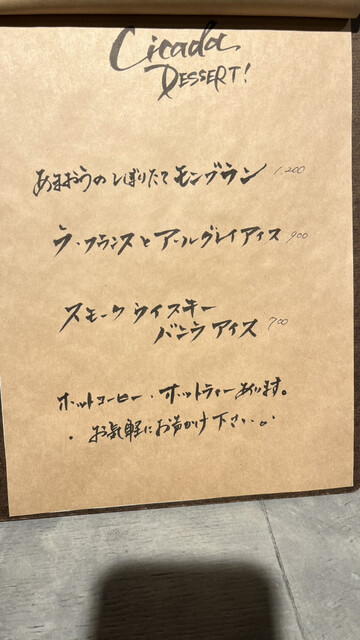 Cicada
DESSERT!
あまおうのしぼりたてモンブラン 1,200
ラ・フランスとアールグレイアイス 900
スモークウイスキー
バニラアイス 700
ホットコーヒー・ホットティーあります。
・お気軽にお声かけ下さい。・